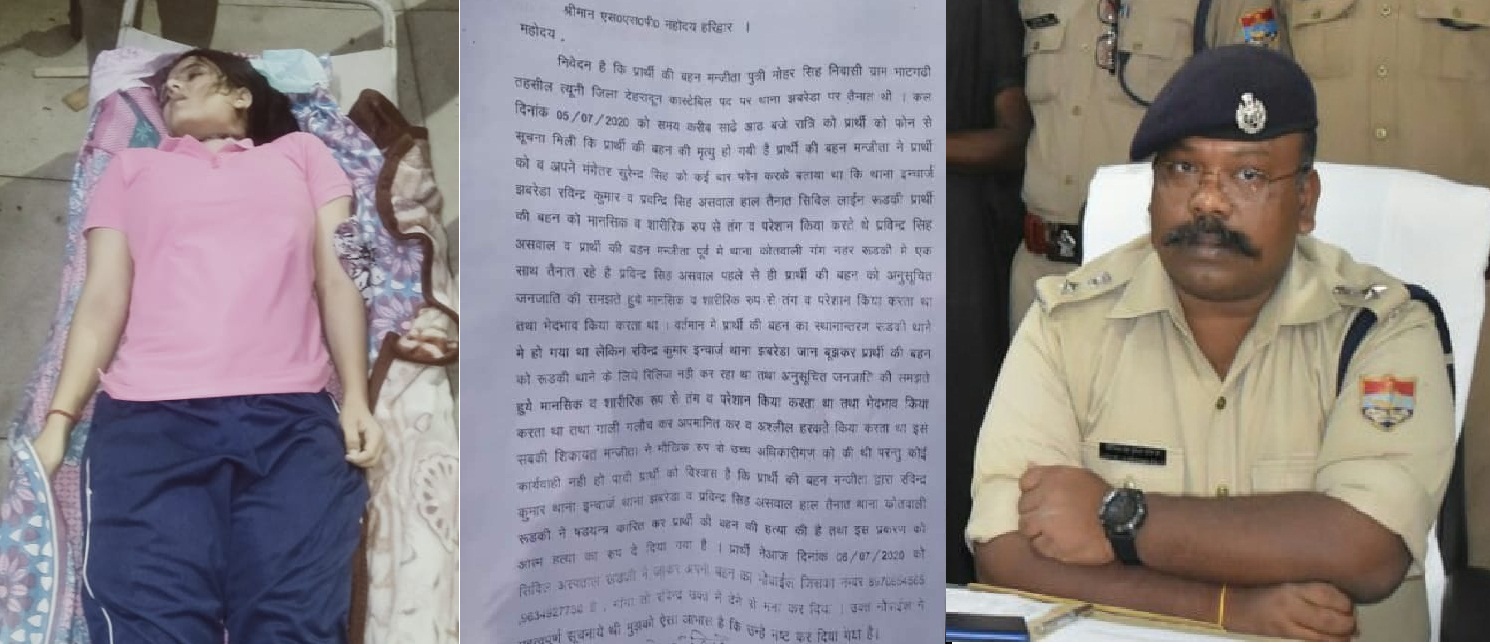 श्रीमान एस०एस०पी० महोदय हरिद्वार ।
महोदय,
निवेदन है कि प्रार्थी की बहन मन्जीता पुत्री मोहर सिह निवासी ग्राम भाटगढी
तहसील त्यूनी जिला देहरादून कास्टेबिल पद पर थाना झबरेडा पर तैनात थी । कल
दिनांक 05/07/2020 को समय करीब साढे आठ बजे रात्रि को प्रार्थी को फोन से
सूचना मिली कि प्रार्थी की बहन की मृत्यु हो गयी है प्रार्थी की बहन मन्जीता ने प्रार्थी
को व अपने मंगेतर सुरेन्द्र सिह को कई बार फोन करके बताया था कि थाना इन्चार्ज
झबरेडा रविन्द्र कुमार व प्रवन्द्रि सिह असवाल हाल तैनात सिविल लाईन रूडकी प्रार्थी
की बहन को मानसिक व शारीरिक रुप से तंग व परेशान किया करते थे प्रविन्द्र सिह
असवाल व प्रार्थी की बहन मन्जीता पूर्व मे थाना कोतवाली गंग नहर रूडकी मे एक
साथ तैनात रहे है प्रविन्द्र सिह असवाल पहले से ही प्रार्थी की बहन को अनुसूचित
जनजाति की समझते हुये मानसिक व शारीरिक रुप से तंग व परेशान किया करता था
तथा भेदभाव किया करता था । वर्तमान मे प्रार्थी की बहन का स्थानान्तरण रूडकी थाने
मे हो गया था लेकिन रविन्द्र कुमार इन्चार्ज थाना झबरेडा जान बूझकर प्रार्थी की बहन
को रूडकी थाने के लिये रिलिज नही कर रहा था तथा अनुसूचित जनजाति की समझते
हुये मानसिक व शारीरिक रुप से तंग व परेशान किया करता था तथा भेदभाव किया
करता था तथा गाली गलौच कर अपमानित कर व अश्लील हरकते किया करता था इस
सबकी शिकायत मन्जीता ने मौखिक रुप से उच्च अधिकारीगण को की थी परन्तु कोई
कार्यवाही नही हो पायी प्रार्थी को विश्वास है कि प्रार्थी की बहन मन्जीता द्वारा रविन्द्र
कुमार थाना इन्चार्ज थाना झबरेडा व प्रविन्द्र सिह असवाल हाल तैनात थाना कोतवाली
रूडकी ने षडयन्त्र कारित कर प्रार्थी की बहन की हत्या की है तथा इस प्रकरण को
आत्म हत्या का रुप दे दिया गया है । प्रार्थी ने आज दिनांक 06/07/2020 को
सिविल अस्पताल रूडकी मे जाकर अपनी बहन का मोबाईल जिसका नम्बर
है , मांगा तो रविन्द्र उक्त ने देने से मना कर दिया । उक्त मोबाईल मे
महत्वपूर्ण सूचनाये थी मुझको ऐसा आभास है कि उन्हे नष्ट कर दिया गया है।